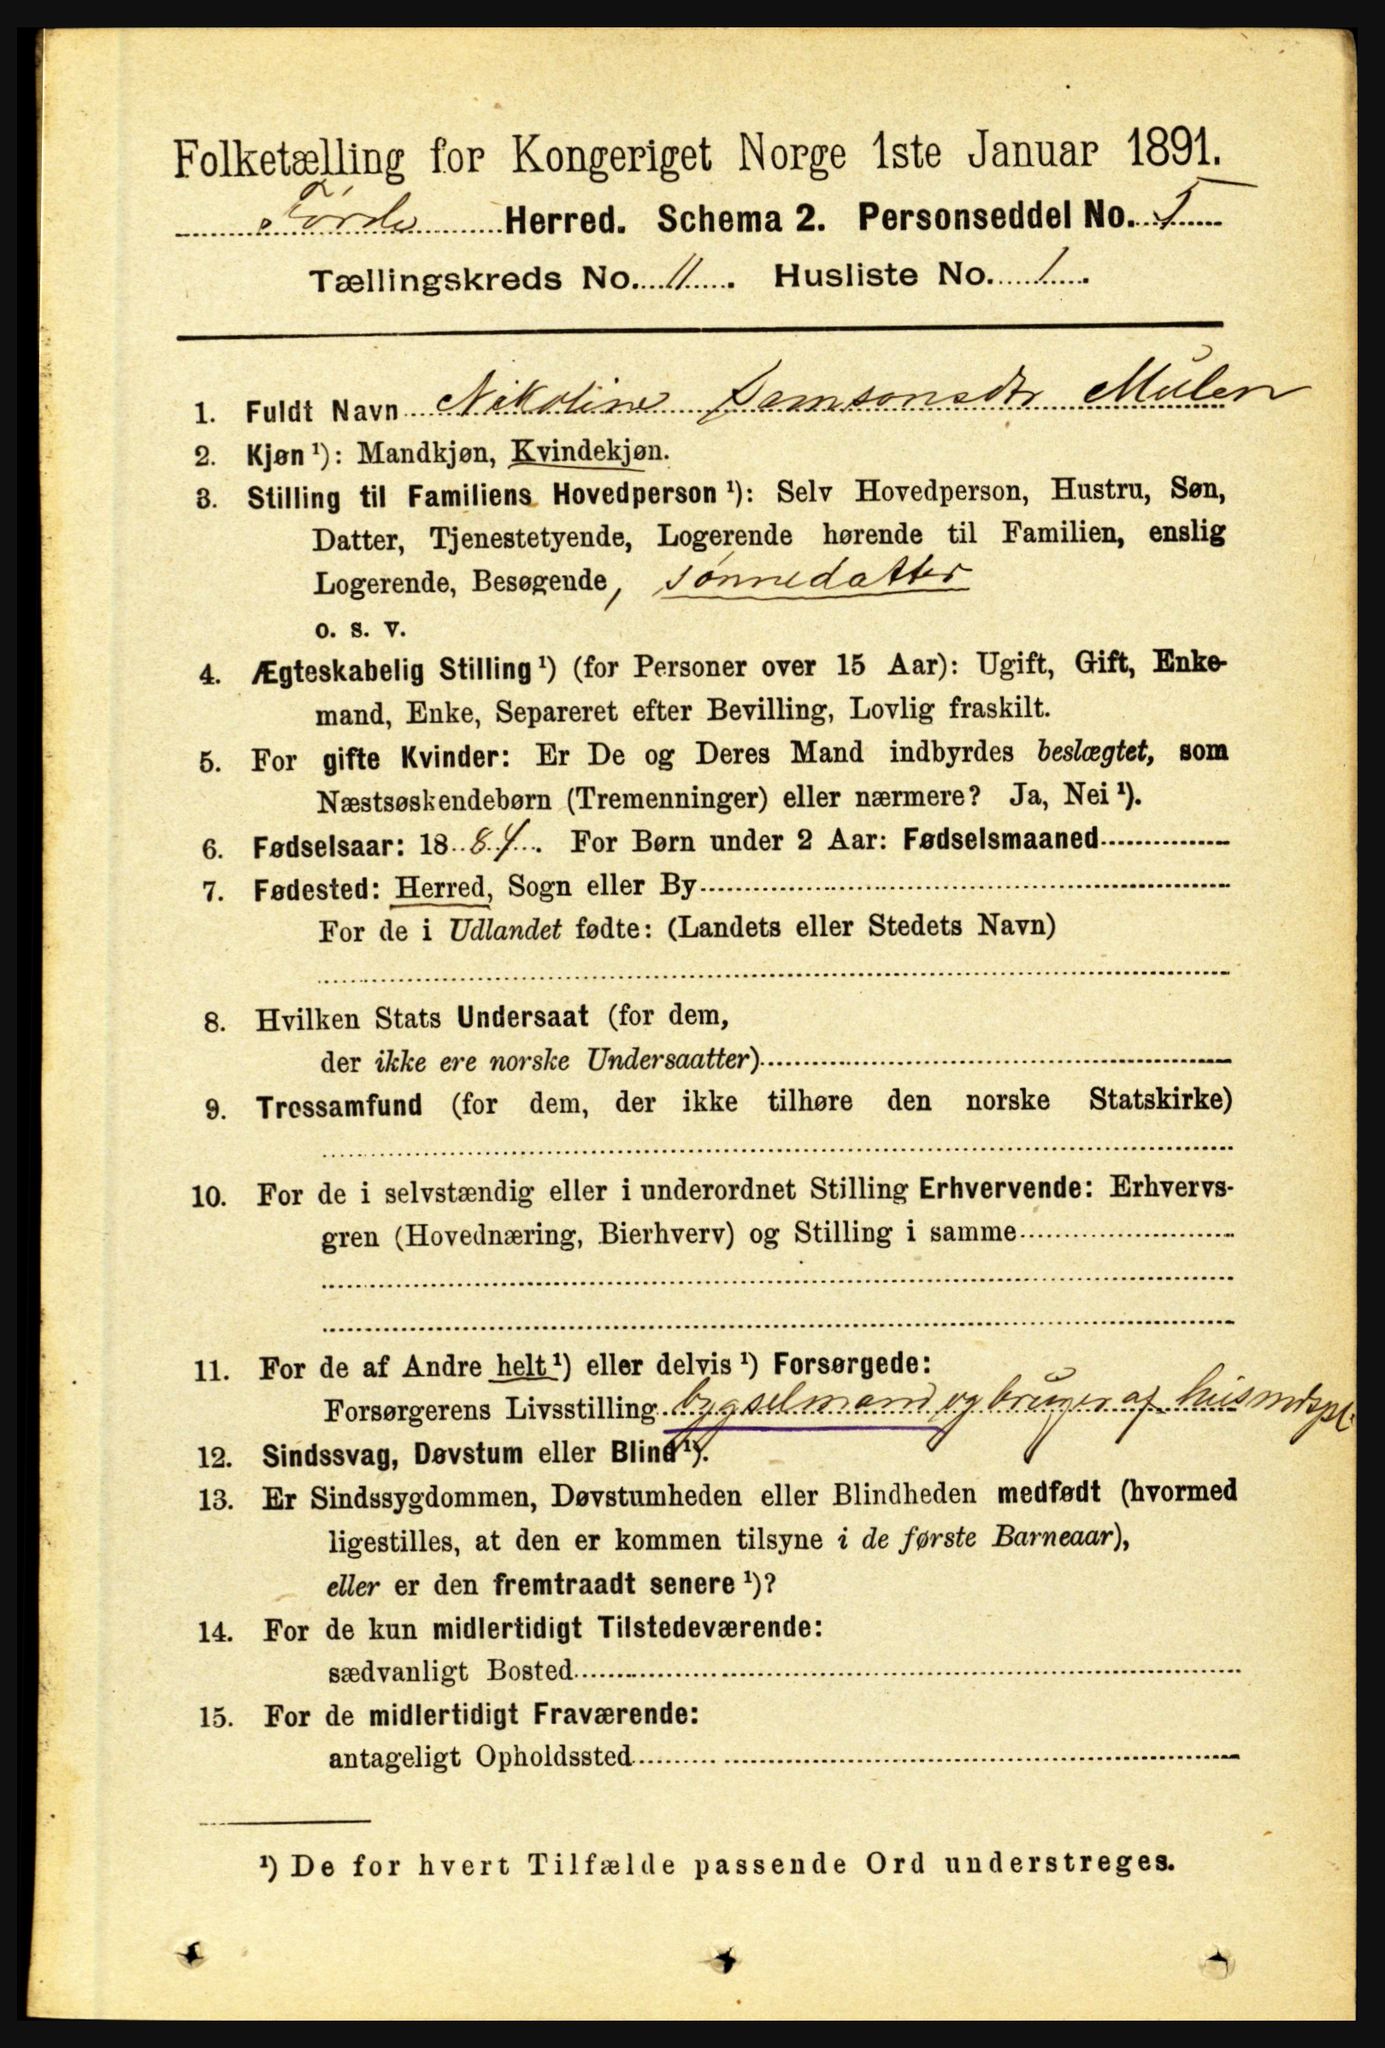 Folketælling for Kongeriget Norge 1ste Januar 1891.
Førde Herred. Schema 2. Personseddel No. 5
Tællingskreds No. 11. Husliste No. 1.
1. Fuldt Navn Nikoline Samsonsdtr Mulen
2. Kjøn ¹): Mandkjøn, Kvindekjøn.
3. Stilling til Familiens Hovedperson ¹): Selv Hovedperson, Hustru, Søn,
Datter, Tjenestetyende, Logerende hørende til Familien, enslig
Logerende, Besøgende, sønnedatter
o. s. v.
4. Ægteskabelig Stilling ¹) (for Personer over 15 Aar): Ugift, Gift, Enke-
mand, Enke, Separeret efter Bevilling, Lovlig fraskilt.
5. For gifte Kvinder: Er De og Deres Mand indbyrdes beslægtet, som
Næstsøskendebørn (Tremenninger) eller nærmere? Ja, Nei ¹).
6. Fødselsaar: 1884. For Børn under 2 Aar: Fødselsmaaned
7. Fødested: Herred, Sogn eller By
For de i Udlandet fødte: (Landets eller Stedets Navn)
8. Hvilken Stats Undersaat (for dem,
der ikke ere norske Undersaatter)
9. Trossamfund (for dem, der ikke tilhøre den norske Statskirke)
10. For de i selvstændig eller i underordnet Stilling Erhvervende: Erhvervs-
gren (Hovednæring, Bierhverv) og Stilling i samme
11. For de af Andre helt ¹) eller delvis ¹) Forsørgede:
Forsørgerens Livsstilling bygselmand og bruger af husmdspl.
12. Sindssvag, Døvstum eller Blind ¹).
13. Er Sindssygdommen, Døvstumheden eller Blindheden medfødt (hvormed
ligestilles, at den er kommen tilsyne i de første Barneaar),
eller er den fremtraadt senere ¹)?
14. For de kun midlertidigt Tilstedeværende:
sædvanligt Bosted
15. For de midlertidigt Fraværende:
antageligt Opholdssted
¹) De for hvert Tilfælde passende Ord understreges.